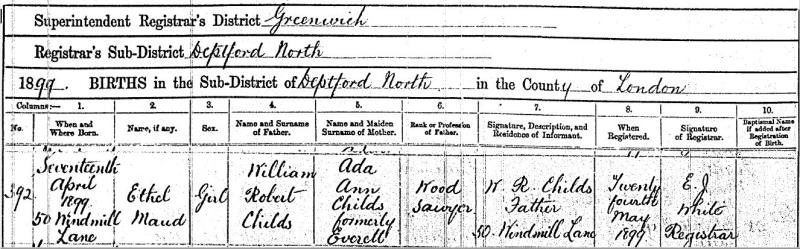 Superintendent Registrar's District Greenwich
Registrar's Sub-District Deptford North
1899. BIRTHS in the Sub-District of Deptford North in the County of London
Columns:— 1. 2. 3. 4. 5. 6. 7. 8. 9. 10.
No. When and Where Born. Name, if any. Sex. Name and Surname of Father. Name and Maiden Surname of Mother. Rank or Profession of Father. Signature, Description, and Residence of Informant. When Registered. Signature of Registrar. Baptismal Name if added after Registration of Birth.
392
Seventeenth
April
1899.
50 Windmill
Lane
Ethel
Maud
Girl
William
Robert
Childs
Ada
Ann
Childs
formerly
Everett
Wood
Sawyer
W. R. Childs
Father
50. Windmill Lane
Twenty
fourth
May
1899
E. J.
White
Registrar